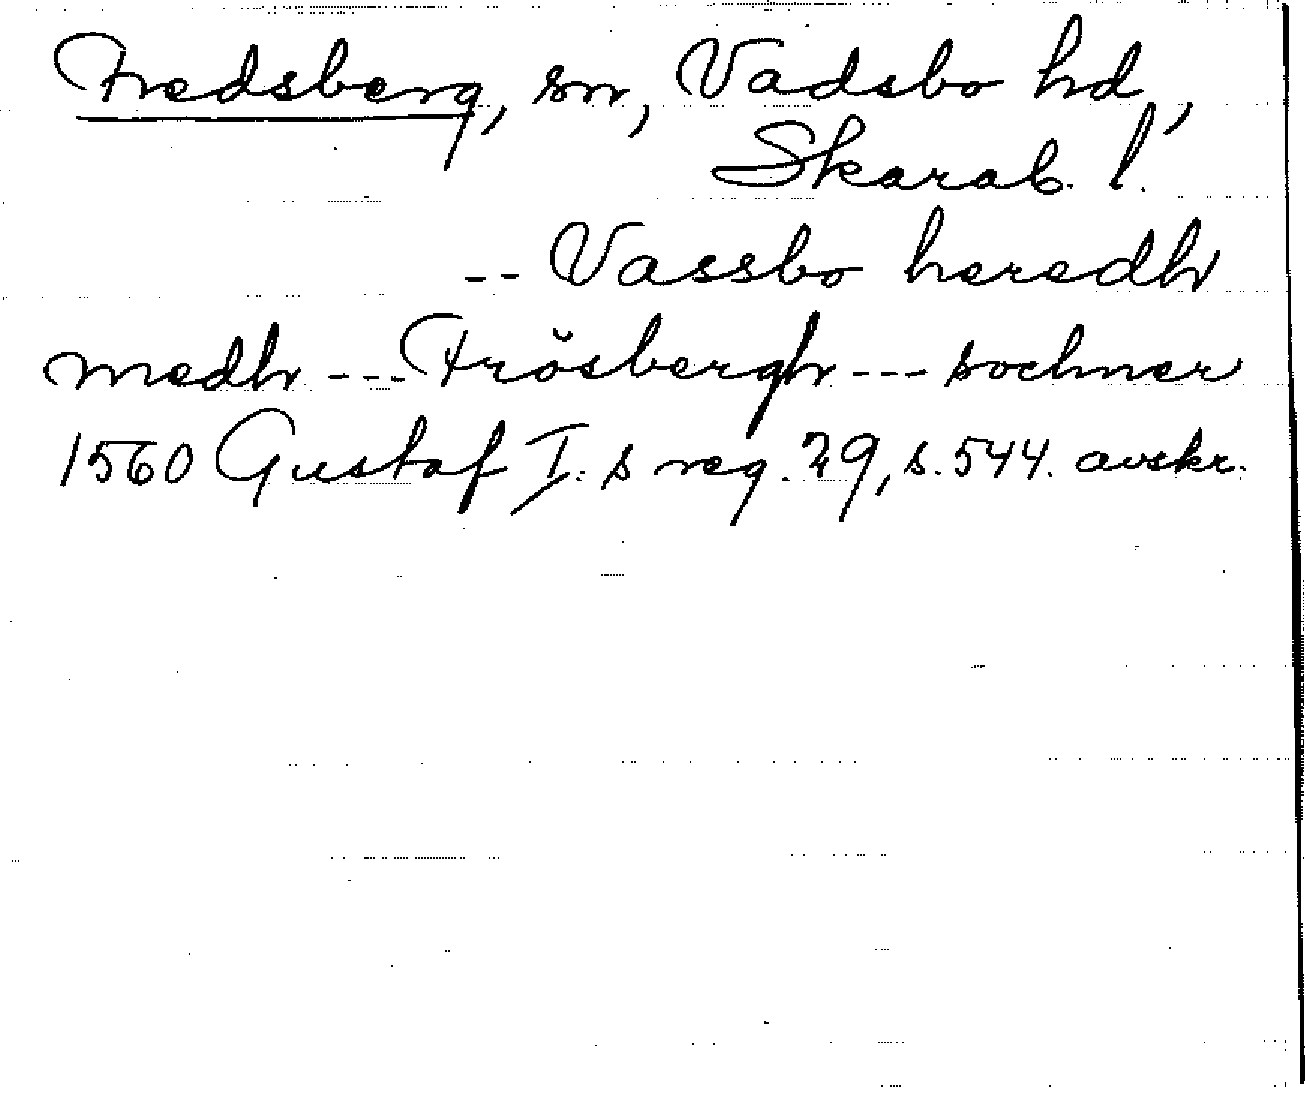 Fredsberg, sn, Vadsbo hd,
Skarab. l.
-- Vassbo heredh
medh --- Frösbergh --- sochner
1560 Gustaf I:s reg. 29, s. 544. avskr.